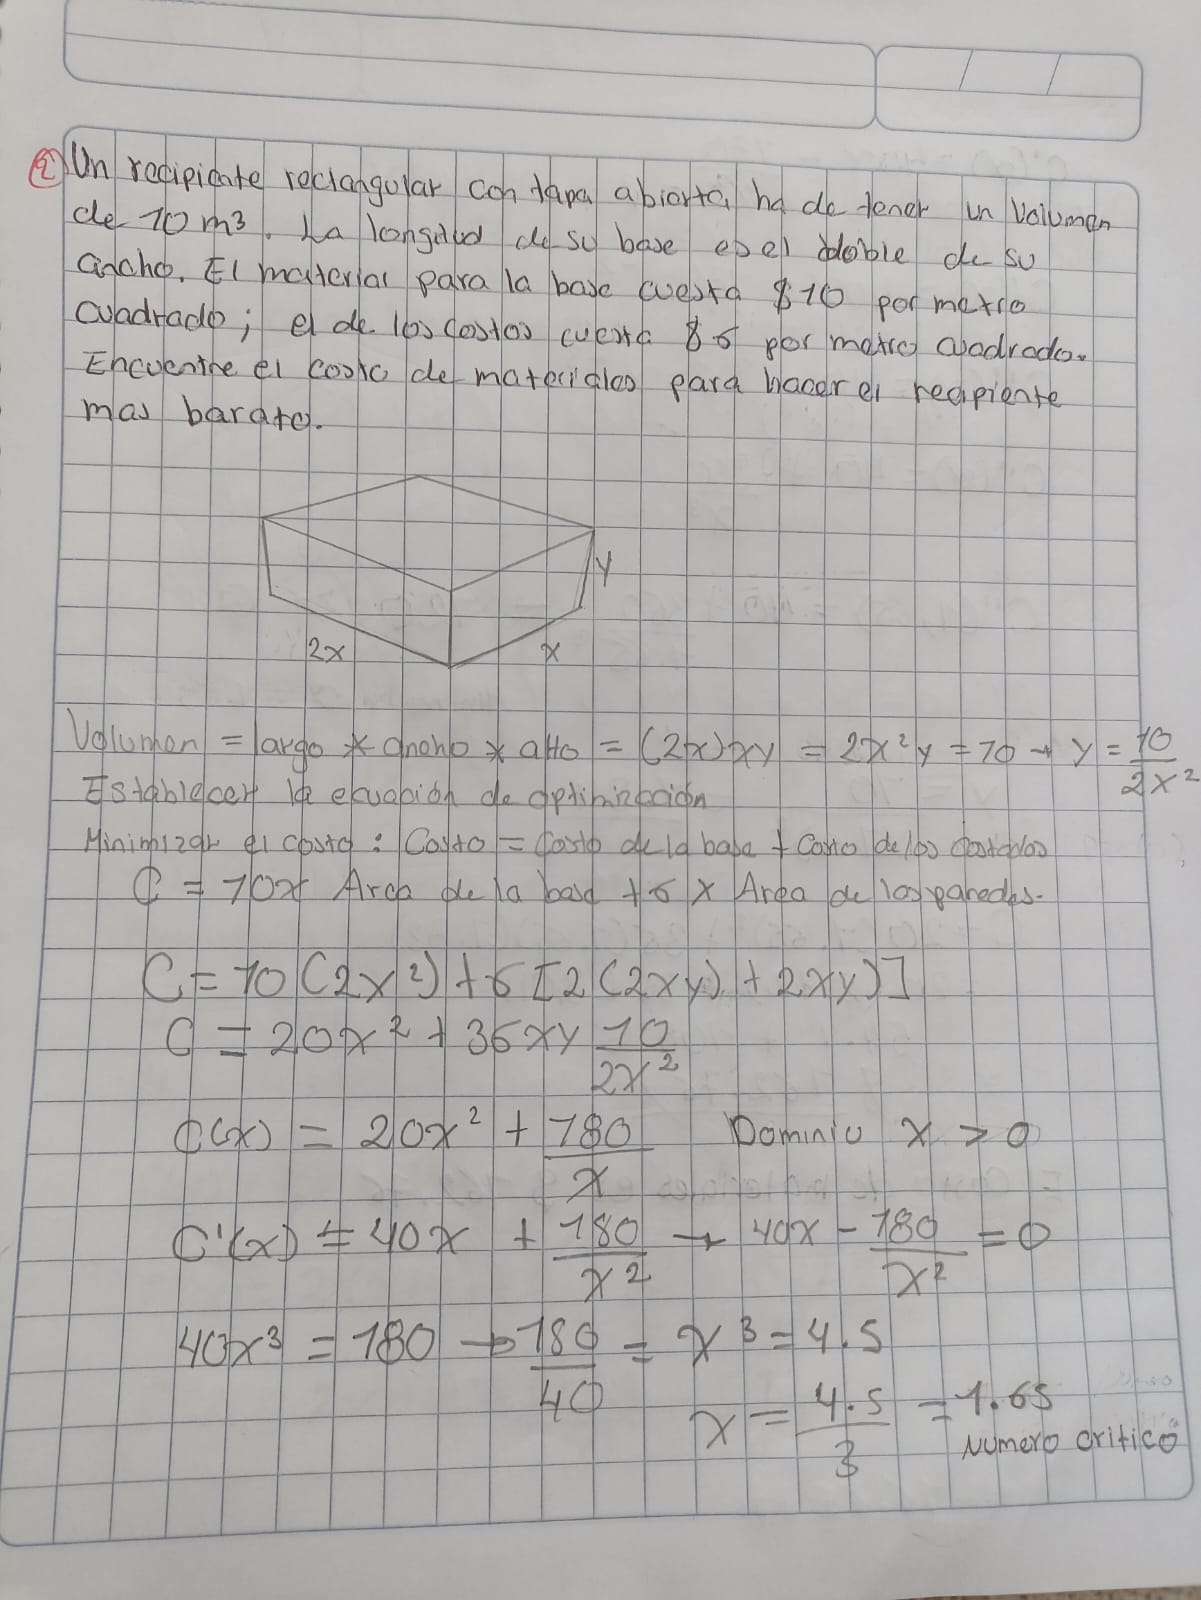 2) Un recipiente rectangular con tapa abierta, ha de tener un Volumen
de 10 m³. La longitud de su base es el doble de su
ancho. El material para la base cuesta $10 por metro
cuadrado; el de los costos cuesta $6 por metro cuadrado.
Encuentre el costo de materiales para hacer el recipiente
mas barato.
y
2x x
Volumen = largo * ancho * alto = (2x)xy = 2x²y = 10 → y = 10/2x²
Establecer la ecuación de optimización
Minimizar el costo: Costo = Costo de la base + Costo de los costados
C = 10x Area de la base + 6 x Area de los paredes.
C = 10(2x²) + 6[2(2xy) + 2xy)]
C = 20x² + 36xy 10/2x²
C(x) = 20x² + 180/x Dominio x > 0
C'(x) = 40x + 180/x² → 40x - 180/x² = 0
40x³ = 180 → 180/40 = x³ = 4.5
x = 4.5/3 = 1.65
Numero critico